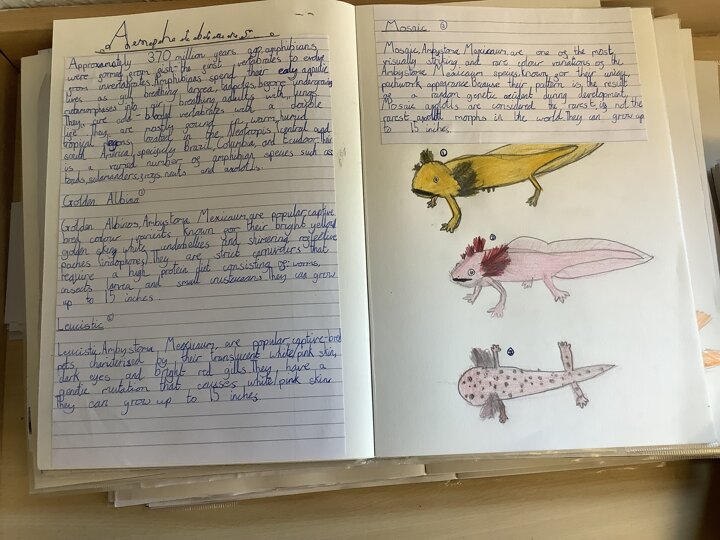 Amphibians
Approximately 370 million years ago amphibians
were formed from fish the first vertebrates to evolve
from invertebrates. Amphibians spend their early aquatic
lives as gill breathing larvea, tadpoles before undergoing
metamorphoses into air breathing adults with lungs.
They are cold-bloody vertebrates with a double
life They are mostly found in warm, humid
tropical located in the Neotropis, Central and
South America, specially Brazil, Columbia, and Ecudoor. Their
is a varied number of amphibian species such as
toads, salamanders, frogs, newts and axolotls.
Golden Albino ①
Golden Albinos, Ambystoma Mexicaum, are popular captive
bred colour variants known for their bright yellow
golden skin, white underbellies and shimering reflective
paches Iridophores. They are strict carnivours that
require a high protein diet consisting of worms,
insects larvea and small crustaceans. They can grow
up to 15 inches.
Leucistic ②
Leucistic, Ambystoma Mexicaum, are popular captive-bred
pets charicterised by their translucent white/pink skin,
dark eyes and bright red gills. They have a
genetic mutation that causes white/pink skin.
They can grow up to 15 inches.
Mosaic ③
Mosaic, Ambystoma Mexicaum, are one of the most
visually striking and rare colour variations of the
Ambystoma Mexicaum species, known for their unique,
patchwork appearance. Because their pattern is the result
of a random genetic accident during development,
Mosaic axolotls are considered the rarest, is not the
rarest axolotl morphs in the world. They can grow up
to 15 inches.
①
②
③